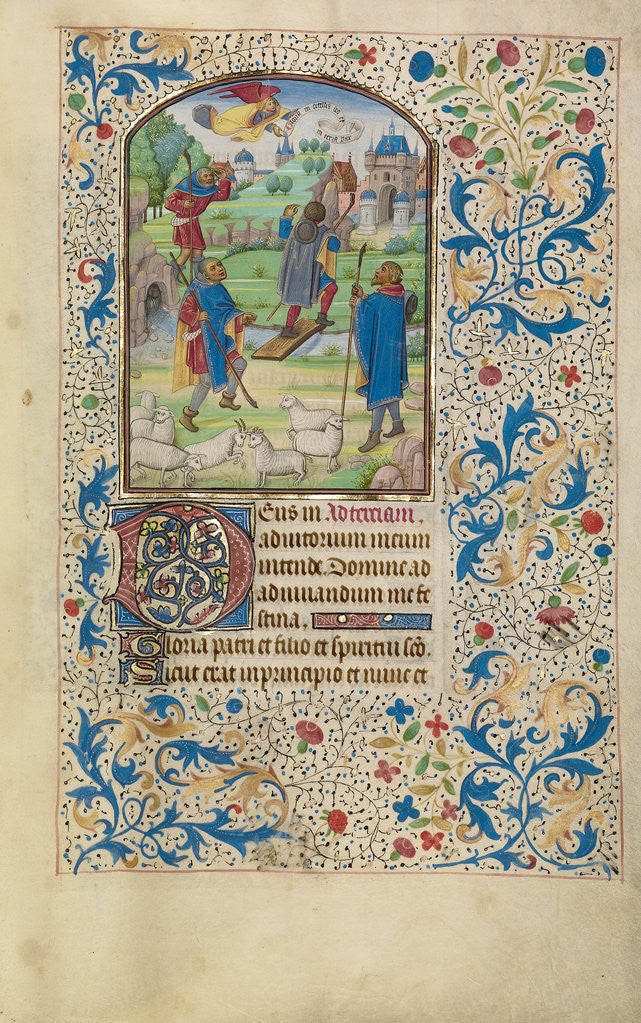 Gloria in excelsis deo et
in terra pax
Deus in Ad terciam.
adiutorium meum
intende. Domine ad
adiuuandum me fe
stina.
Gloria patri et filio et spiritui sco.
Sicut erat in principio et nunc et